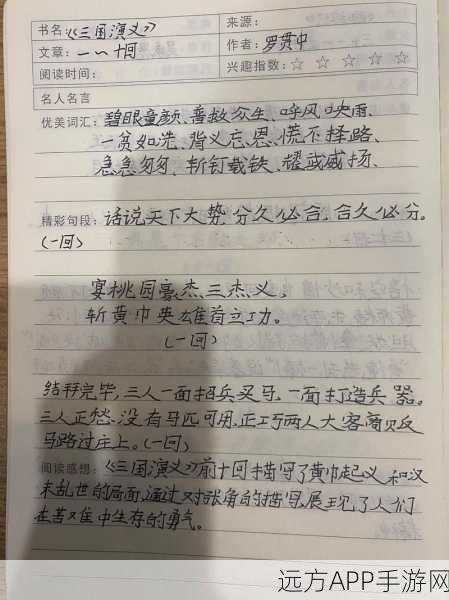 书名:《三国演义》
来源:
文章:一~十回
作者:罗贯中
阅读时间:
兴趣指数:☆ ☆ ☆ ☆ ☆
名人名言
优美词汇:碧眼童颜、普救众生、呼风唤雨、
一贫如洗、背义忘恩、慌不择路、
急急匆匆、斩钉截铁、耀武威扬、
精彩句段:话说天下大势,分久必合,合久必分。
(一回)
宴桃园豪杰三杰义,
斩黄巾英雄首立功。
(一回)
结拜完毕,三人一面招兵买马,一面打造兵器。
三人正愁没有马匹可用,正巧两人大客商贩
马路过庄上。(一回)
阅读感想:《三国演义》前十回描写了黄巾起义和汉
末乱世的局面,通过对张角的描写,展现了人们
在苦难中生存的勇气。
远方APP手游网